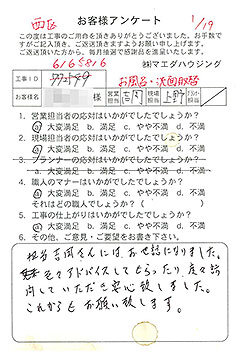 西区 お客様アンケート 1/19
この度は工事のご用命を頂きありがとうございました。お手数で
すがご記入頂き、ご返送頂きますようお願い申し上げます。
ご返送頂いた方から、毎月抽選で感謝品を進呈いたします。
616816 ㈱マエダハウジング
工事ID お風呂・洗面取替
お客様名 様 営業 吉岡 現場
1. 営業担当者の応対はいかがでしたでしょうか?
ⓐ大変満足 b. 満足 c. やや不満 d. 不満
2. 現場担当者の応対はいかがでしたでしょうか?
ⓐ大変満足 b. 満足 c. やや不満 d. 不満
3. プランナーの応対はいかがでしたでしょうか?
a. 大変満足 b. 満足 c. やや不満 d. 不満
4. 職人のマナーはいかがでしたでしょうか?
ⓐ大変満足 b. 満足 c. やや不満 d. 不満
それはどの職人でしょうか? ( )
5. 工事の仕上がりはいかがでしたでしょうか?
ⓐ大変満足 b. 満足 c. やや不満 d. 不満
6. その他、ご意見・ご要望をお書き下さい。
担当吉岡さんにはお世話になりました。
色々アドバイスしてもらったり、度々訪
問していただき安心致しました。
これからもお願い致します。